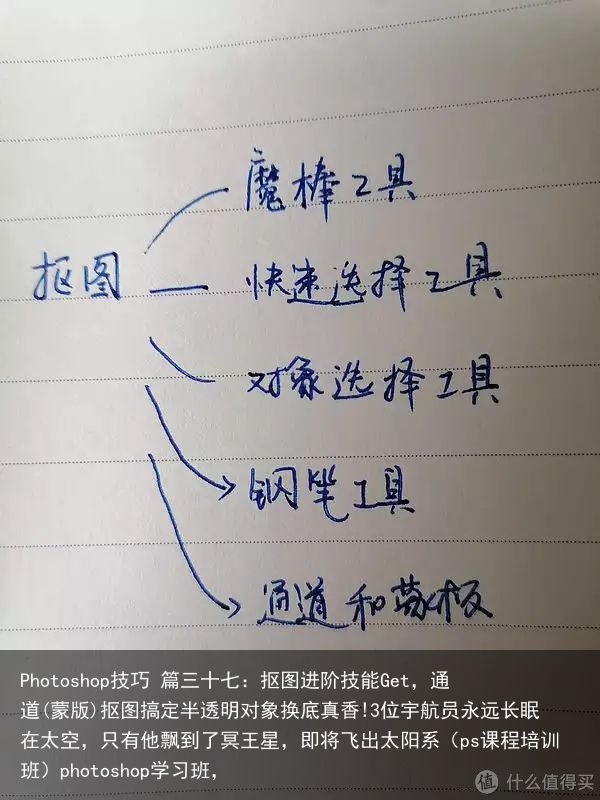 魔棒工具
抠图
快速选择工具
对象选择工具
钢笔工具
通道和蒙板
Photoshop技巧 篇三十七：抠图进阶技能Get，通
道(蒙版)抠图搞定半透明对象换底真香!3位宇航员永远长眠
在太空，只有他飘到了冥王星，即将飞出太阳系（ps课程培训
班）photoshop学习班，
值 什么值得买